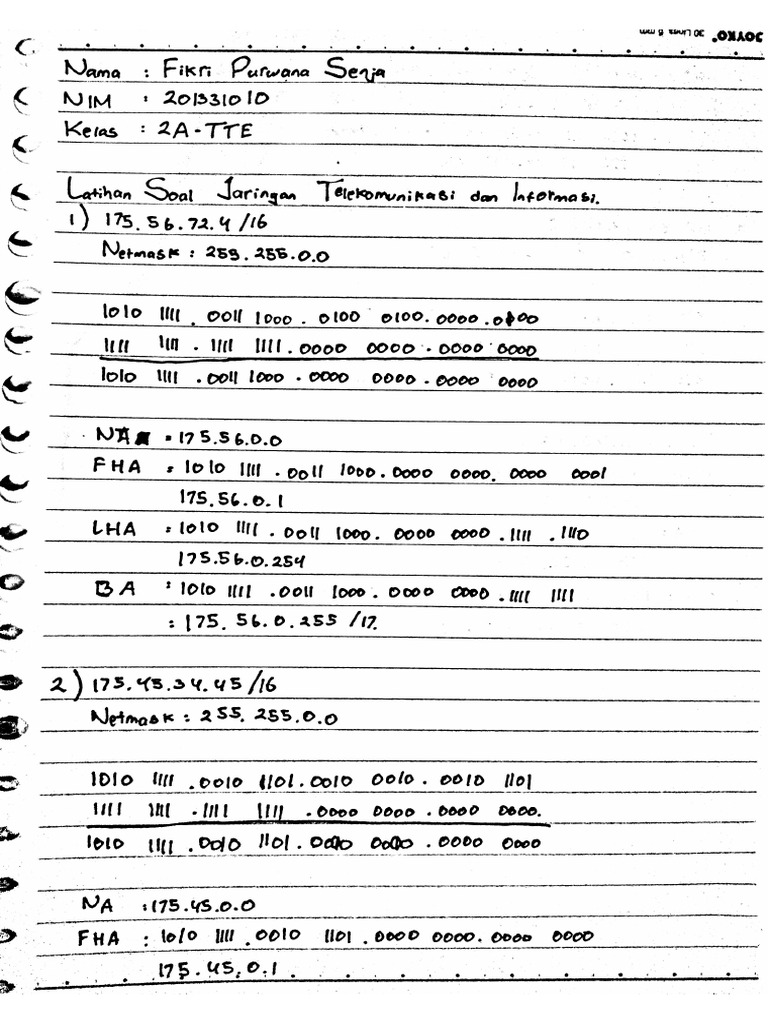 JOYKO® 30 Lines 6 mm
Nama : Fikri Purwana Senja
NIM : 201331010
Kelas : 2A-TTE
Latihan Soal Jaringan Telekomunikasi dan Informasi.
1) 175.56.72.4/16
Netmask : 255.255.0.0
1010 1111 . 0011 1000 . 0100 0100.0000.0100
1111 1111 . 1111 1111.0000 0000 . 0000 0000
1010 1111 .0011 1000 . 0000 0000.0000 0000
NA = 175.56.0.0
FHA = 1010 1111 .0011 1000.0000 0000. 0000 0001
175.56.0.1
LHA : 1010 1111 . 0011 1000. 0000 0000 .1111 .1110
175.56.0.254
BA : 1010 1111 .0011 1000 . 0000 0000 .1111 1111
: 175. 56.0.255 /17.
2) 175.45.34.45/16
Netmask : 255.255.0.0
1010 1111 .0010 1101.0010 0010 . 0010 1101
1111 1111 .1111 1111 .0000 0000 .0000 0000.
1010 1111 .0010 1101 .0000 0000 .0000 0000
NA :175.45.0.0
FHA : 1010 1111 .0010 1101 .0000 0000.0000 0000
175.45.0.1